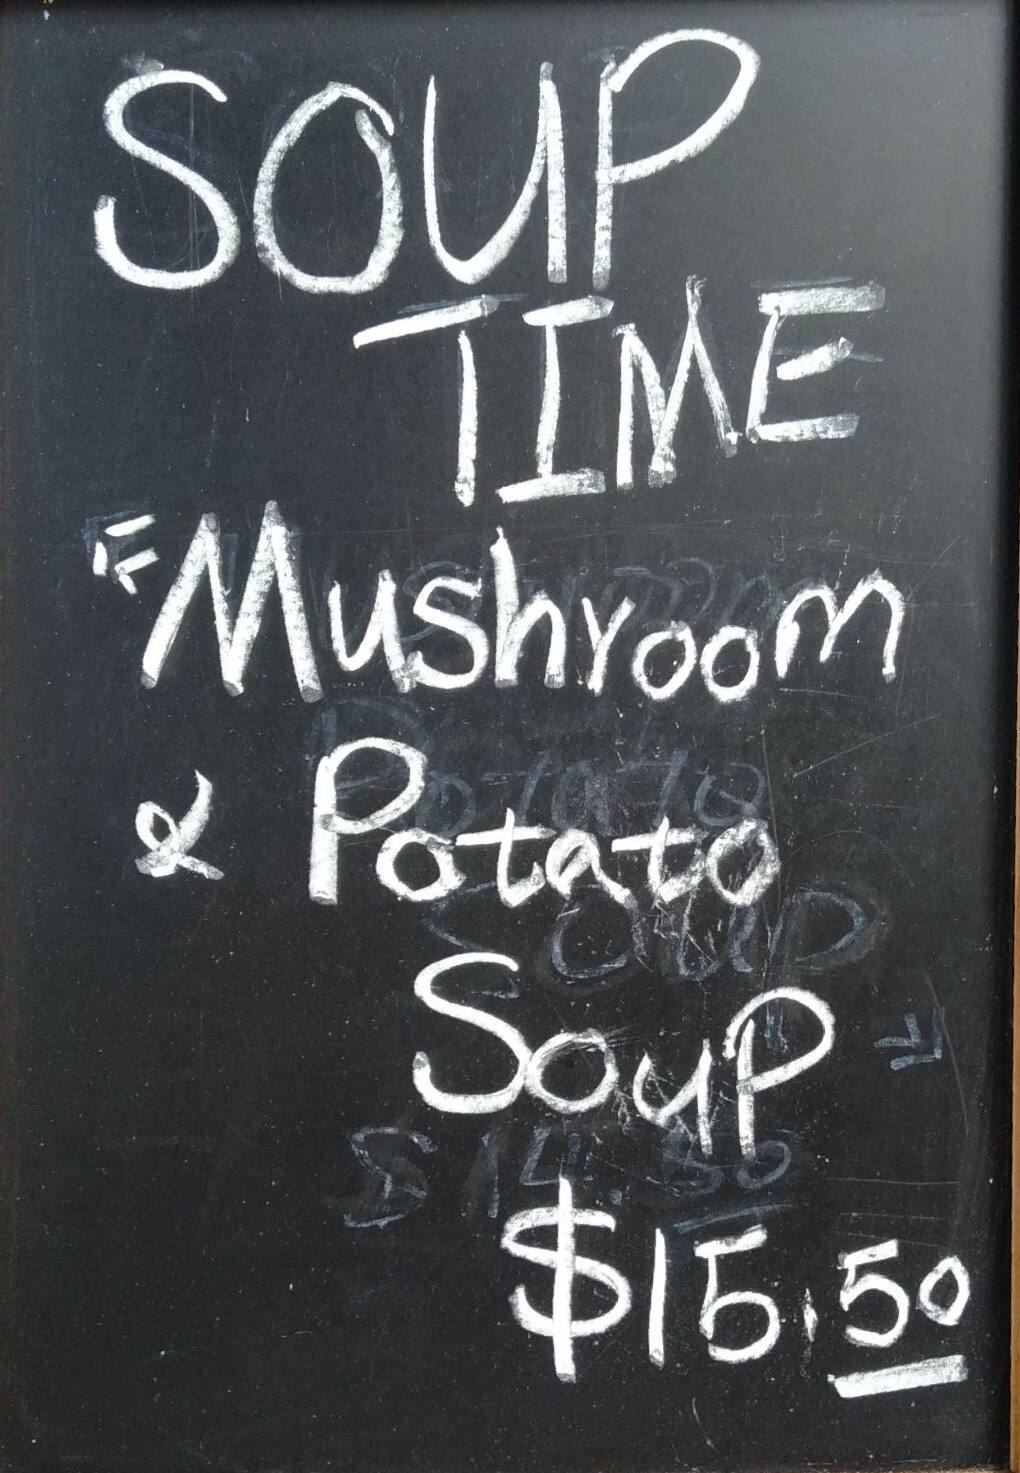 SOUP
TIME
"Mushroom
& Potato
Soup"
$15.50